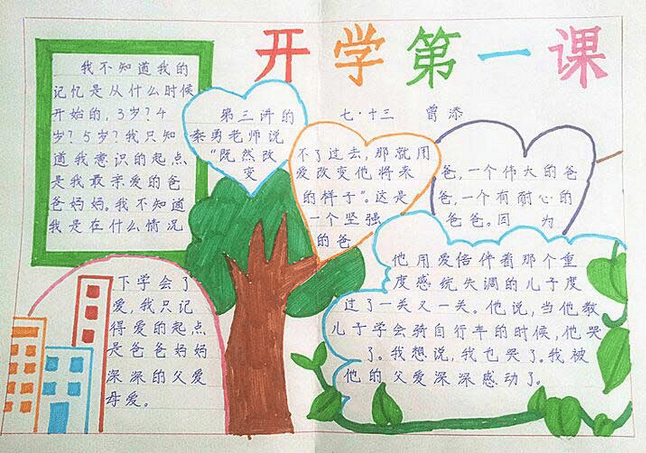 开学第一课
七·十三 曾添
我不知道我的
记忆是从什么时候
开始的，3岁？4
岁？5岁？我只知
道我意识的起点
是我最亲爱的爸
爸妈妈。我不知道
我是在什么情况
下学会了
爱，我只记
得爱的起点
是爸爸妈妈
深深的父爱
母爱。
第三讲的
秦勇老师说
“既然改
变
不了过去，那就用
爱改变他将来
的样子”。这是
一个坚强
的爸
爸，一个伟大的爸
爸，一个有耐心的
爸爸。因为
他用爱陪伴着那个重
度感统失调的儿子度
过了一关又一关。他说，当他教
儿子学会骑自行车的时候，他哭
了。我想说，我也哭了。我被
他的父爱深深感动了。